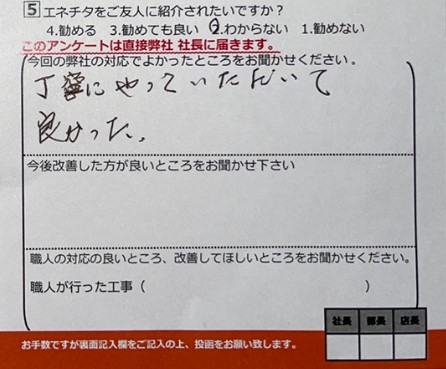 5 エネチタをご友人に紹介されたいですか?
4.勧める 3.勧めても良い 2.わからない 1.勧めない
このアンケートは直接弊社 社長に届きます。
今回の弊社の対応でよかったところをお聞かせください。
丁寧にやっていただいて
良かった。
今後改善した方が良いところをお聞かせ下さい
職人の対応の良いところ、改善してほしいところをお聞かせください。
職人が行った工事( )
社長 部長 店長
お手数ですが裏面記入欄をご記入の上、投函をお願い致します。